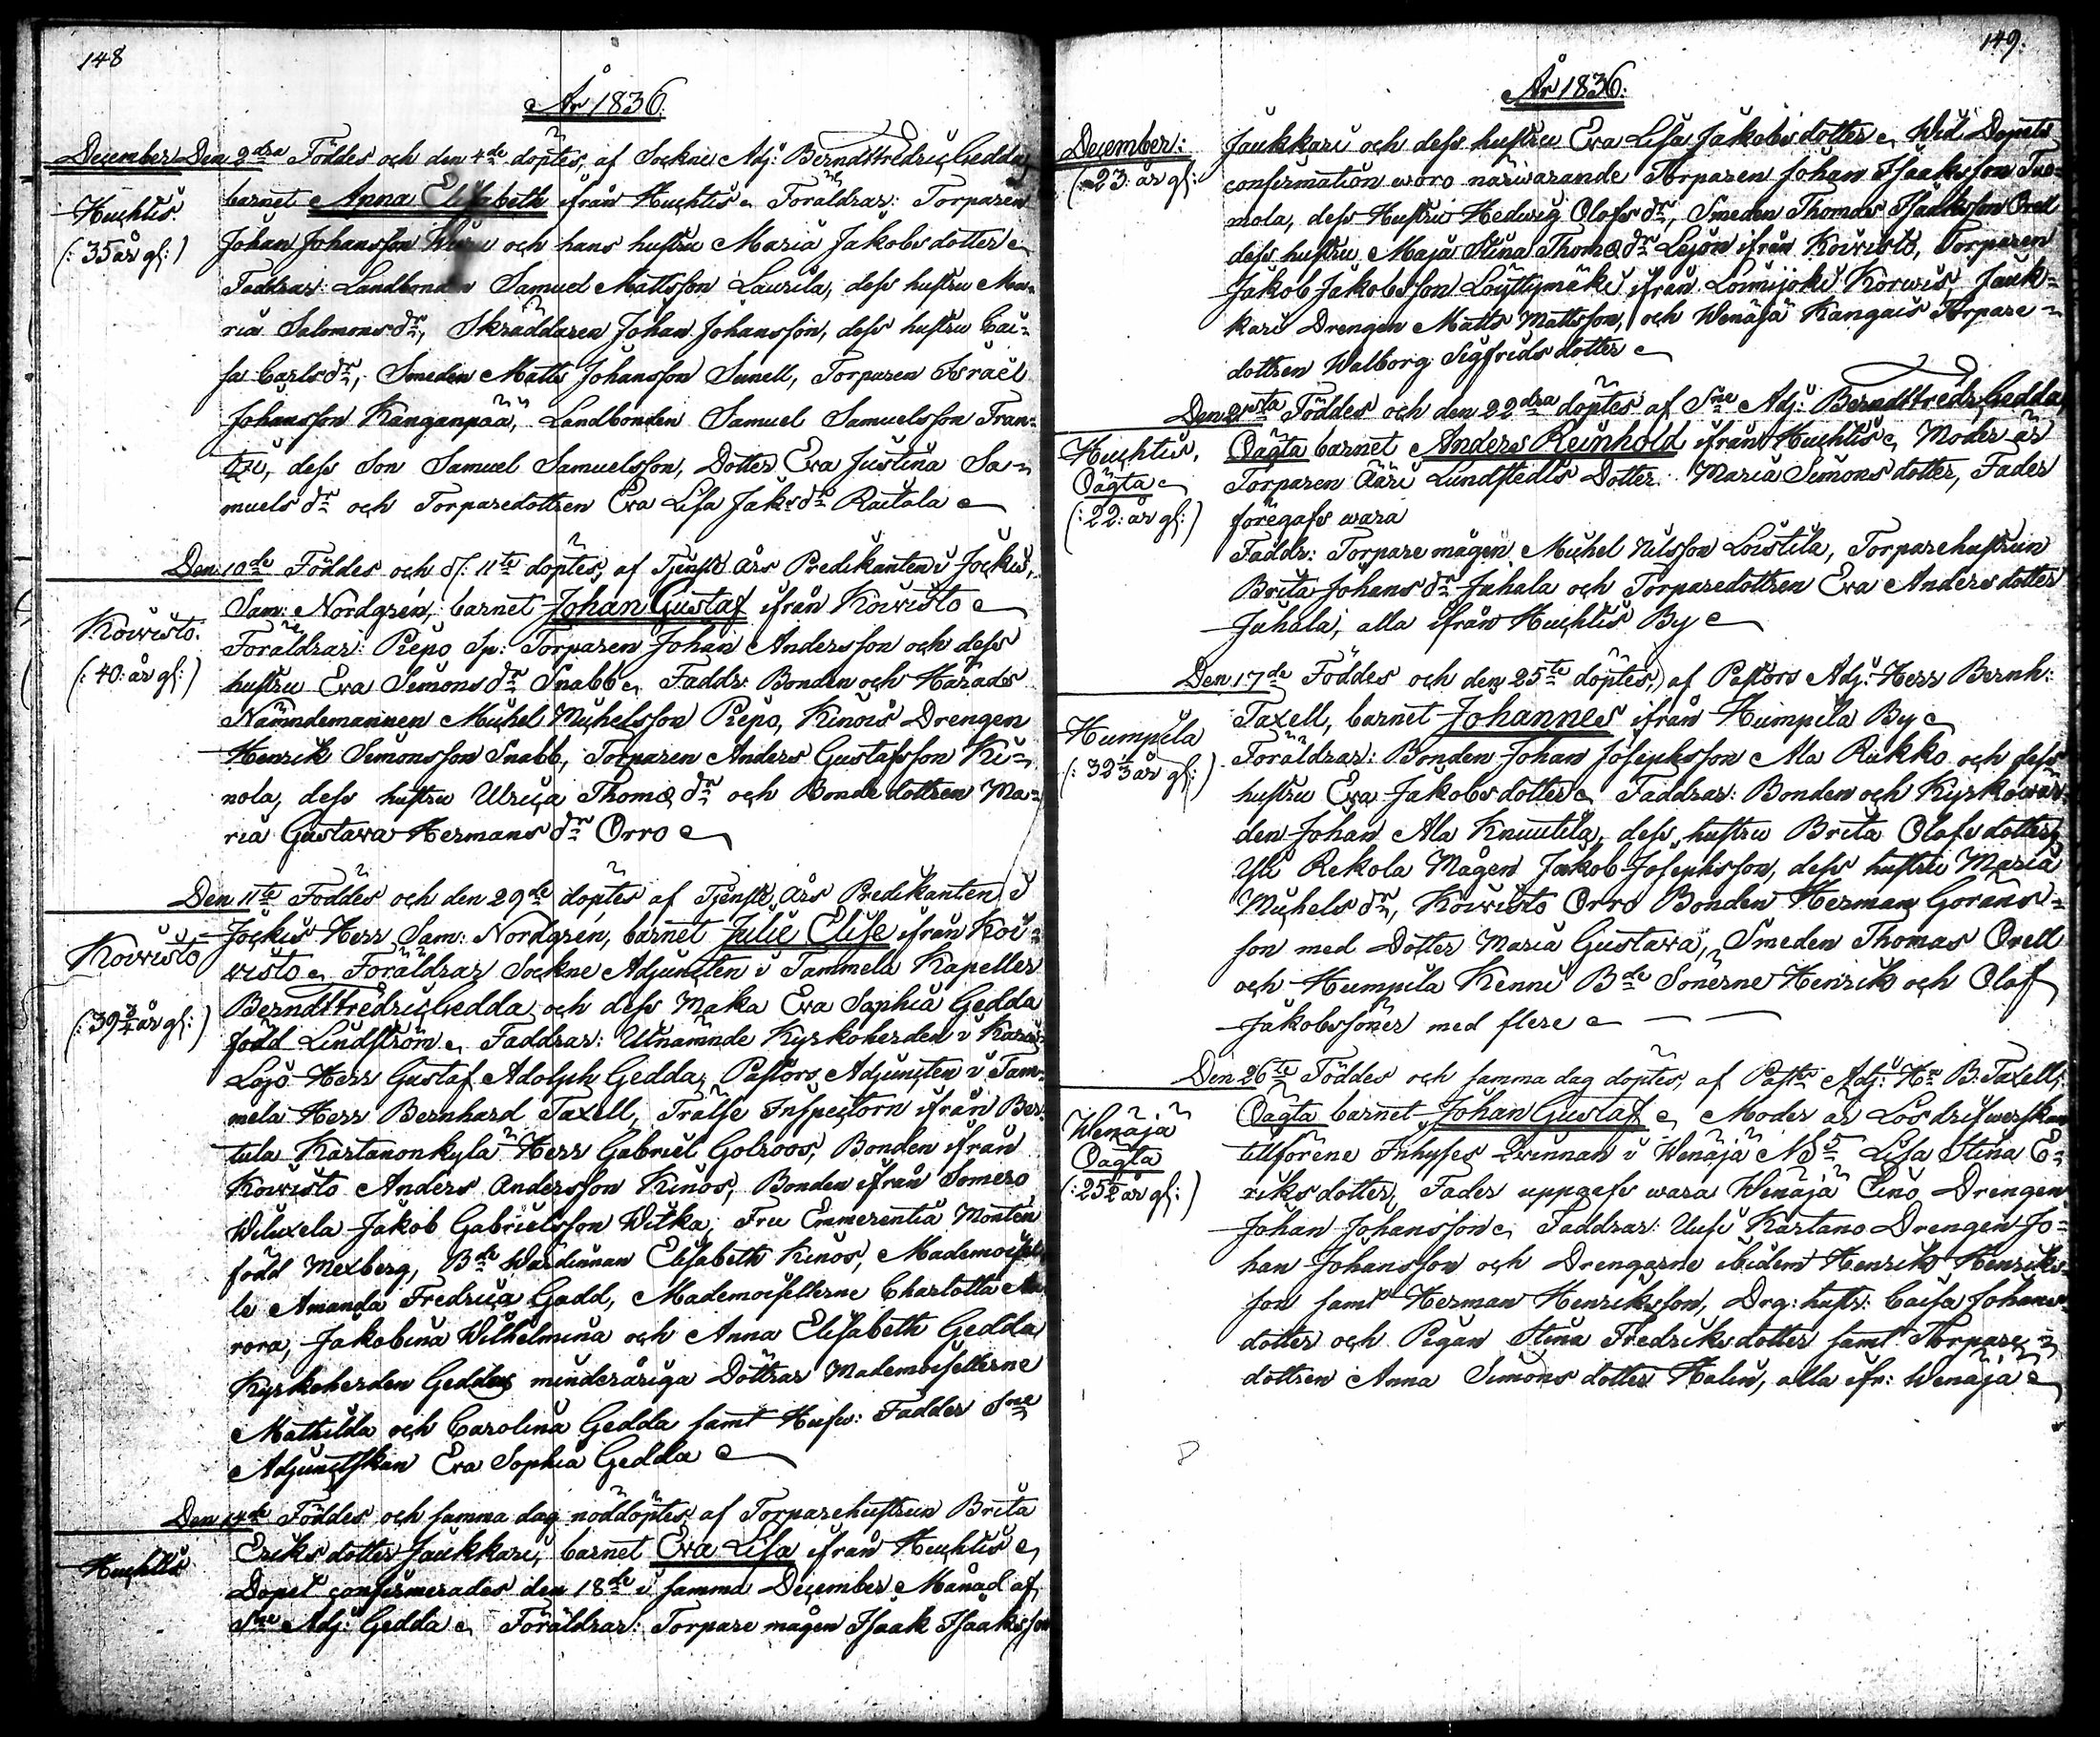 148
År 1836.
December Den 2dra Föddes och den 4de döptes, af Sockne Adj: Berndt Fredric Gedda,
Huchtis barnet Anna Elisabeth ifrån Huchtis. Föräldrar: Torparen
(: 35 år gl:) Johan Johansson och hans hustru Maria Jakobsdotter
Faddrar: Landbonden Samuel Mattsson Laurila, dess hustru Ma-
ria Salomonsdr, Skräddaren Johan Johansson, dess hustru Cai-
sa Carlsdr, Smeden Matts Johansson Sunell, Torparen Israel
Johansson Kanganpää, Landbonden Samuel Samuelsson Fran-
tzi, dess Son Samuel Samuelsson, Dotter Eva Justina Sa-
muelsdr och Torparedottren Eva Lisa Jaksdr Raitala
Den 10de Föddes och d. 11te döptes, af Tjenste Års Predikanten i Jockis,
Koivisto. Sam: Nordgrén, barnet Johan Gustaf ifrån Koivisto
Föräldrar: Piepo Sp: Torparen Johan Andersson och dess
(: 40: år gl:) hustru Eva Simonsdr Snabb. Faddr: Bonden och Härads
Nämndemannen Michel Michelsson Piepo, Kinois Drengen
Henrik Simonsson Snabb, Torparen Anders Gustafsson Ki-
nola, dess hustru Ulrica Thomædr och Bondedottren Ma-
ria Gustava Hermansdr Orro
Den 11te Föddes och den 29de döptes af Tjenste Års Predikanten i
Jockis Herr Sam: Nordgrén, barnet Julie Elise ifrån Koi-
Koivisto visto. Föräldrar Sockne Adjuncten i Tammela Kapeller
Berndt Fredric Gedda och dess Maka Eva Sophia Gedda
(: 39 3/4 år gl:) född Lindström. Faddrar: Utnämnde Kyrkoherden i Karis-
Lojo Herr Gustaf Adolph Gedda, Pastors Adjuncten i Tam-
mela Herr Bernhard Taxell, Frälse Inspectorn ifrån Ber-
tula Kartanonkylä Herr Gabriel Golroos, Bonden ifrån
Koivisto Anders Andersson Kinos, Bonden ifrån Somero
Wiluxela Jakob Gabrielsson Witka, Fru Emmerentia Montén
född Mexberg, Bde Wärdinnan Elisabeth Kinos, Mademoisel-
le Amanda Fredrica Gadd, Mademoisellerne Charlotta Au-
rora, Jakobina Wilhelmina och Anna Elisabeth Gedda
Kyrkoherden Geddas minderåriga Döttrar Mademoisellerne
Mathilda och Carolina Gedda samt Husw: Fadder Sne
Adjunctskan Eva Sophia Gedda
Den 14de Föddes och samma dag nöddöptes af Torparehustrun Brita
Huchtis Eriksdotter Jaukkari, barnet Eva Lisa ifrån Huchtis
Dopet confirmerades den 18de i samma December Månad af
Sne Adj: Gedda. Föräldrar: Torpare mågen Isaak Isaaksson
149.
År 1836.
December: Jaukkari och dess hustru Eva Lisa Jakobsdotter. Wid Dopets
(: 23: år gl: confirmation woro närwarande Torparen Johan Isaaksson Tuo-
mola, dess Hustru Hedwig Olofsdr, Smeden Thomas Isaaksson Orell
dess hustru Maja Stina Thomædr Lejon ifrån Koivisto, Torparen
Jakob Jakobsson Löyttymäki ifrån Loimijoki Korwis, Jauk-
kari Drengen Matts Mattsson, och Wenäjä Kangais Torpare-
dottren Walborg Sigfridsdotter
Den 21sta Föddes och den 22dra döptes af Sne Adj: Berndt Fredr: Gedda,
Huchtis, Oägta barnet Anders Reinhold ifrån Huchtis. Moder är
Oägta Torparen Ääri Lundstedts Dotter: Maria Simonsdotter, Fader
(: 22: år gl:) föregafs wara
Faddr: Torpare mågen Michel Nilsson Loistila, Torparehustrun
Brita Johansdr Juhala och Torparedottren Eva Andersdotter
Juhala, alla ifrån Huchtis By
Den 17de Föddes och den 25te döptes, af Pastors Adj: Herr Bernh:
Humpila Taxell, barnet Johannes ifrån Humpila By
(: 32 2/3 år gl:) Föräldrar: Bonden Johan Josephsson Ala Rukko och dess
hustru Eva Jakobsdotter. Faddrar: Bonden och Kyrkowär-
den Johan Ala Knuutila, dess hustru Brita Olofsdotter,
Yli Rekola Mågen Jakob Josephsson, dess hustru Maria
Michelsdr, Koivisto Orro Bonden Herman Görans-
son med Dotter Maria Gustava, Smeden Thomas Orell
och Humpila Kenni Bde Sönerne Henrik och Olof
Jakobssöner med flere
Den 26te Föddes och samma dag döptes, af Pastrs Adj: Hr B: Taxell,
Wenäjä Oägta barnet Johan Gustaf. Moder är Lösdrifwerskan
Oägta tillförene Inhyses Qvinnan i Wenäjä N 5 Lisa Stina E-
(: 25 1/2 år gl:) riksdotter, Fader uppgefs wara Wenäjä Eino Drengen
Johan Johansson. Faddrar: Uusi Kartano Drengen Jo-
han Johansson och Drengarne ibidem Henrik Henriks-
son samt Herman Henriksson, Drg: hustr: Caisa Johans-
dotter och Pigan Stina Fredriksdotter samt Torpare-
dottren Anna Simonsdotter Halin, alla ifr: Wenäjä